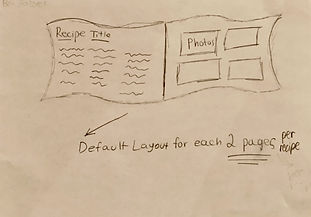 Recipe Title
Photos
Default Layout for each 2 pages per recipe